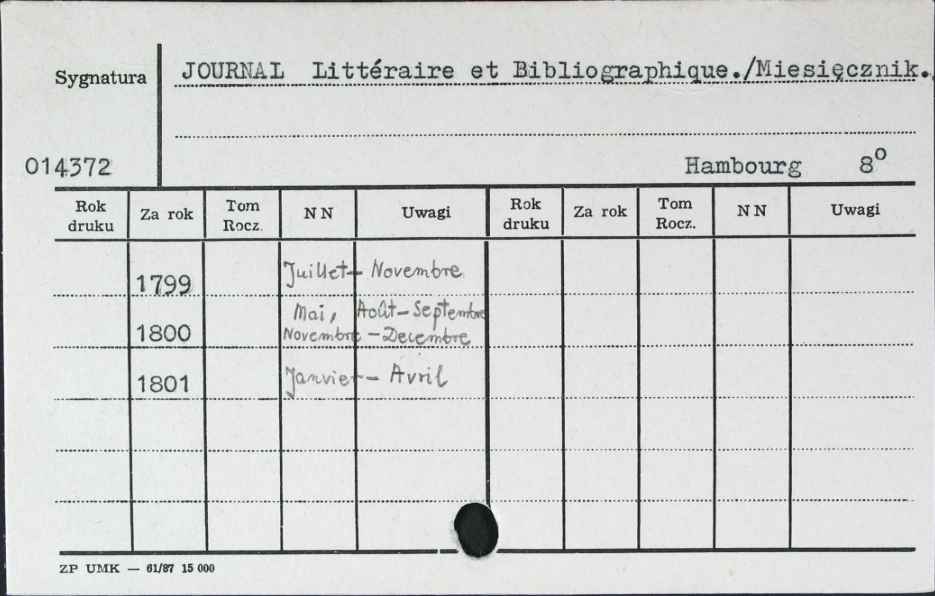 Sygnatura
JOURNAL Littéraire et Bibliographique./Miesięcznik.
014372
Hambourg 8º
Rok druku Za rok Tom Rocz. NN Uwagi Rok druku Za rok Tom Rocz. NN Uwagi
1799 Juillet - Novembre
1800 Mai, Août - Septembre
Novembre - Decembre
1801 Janvier - Avril
ZP UMK — 61/87 15 000